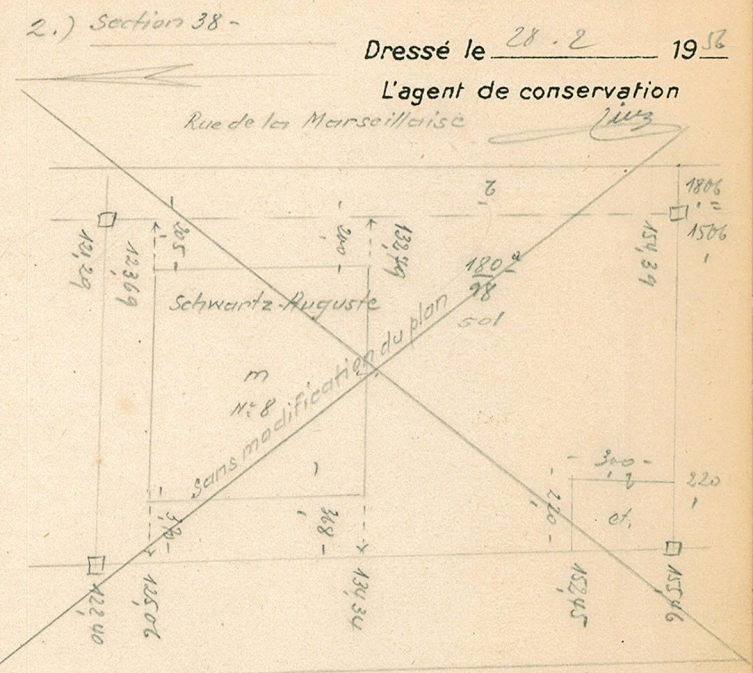 2.) Section 38-
Dressé le 28.2 1956
L'agent de conservation
Rue de la Marseillaise
1806
1506
121,29
123,69
205
200
132,79
180
98
sol
154,39
Schwartz-Auguste
m
N° 8
sans modification du plan
300
220
220
et.
368
122,40
125,06
134,34
152,45
155,46